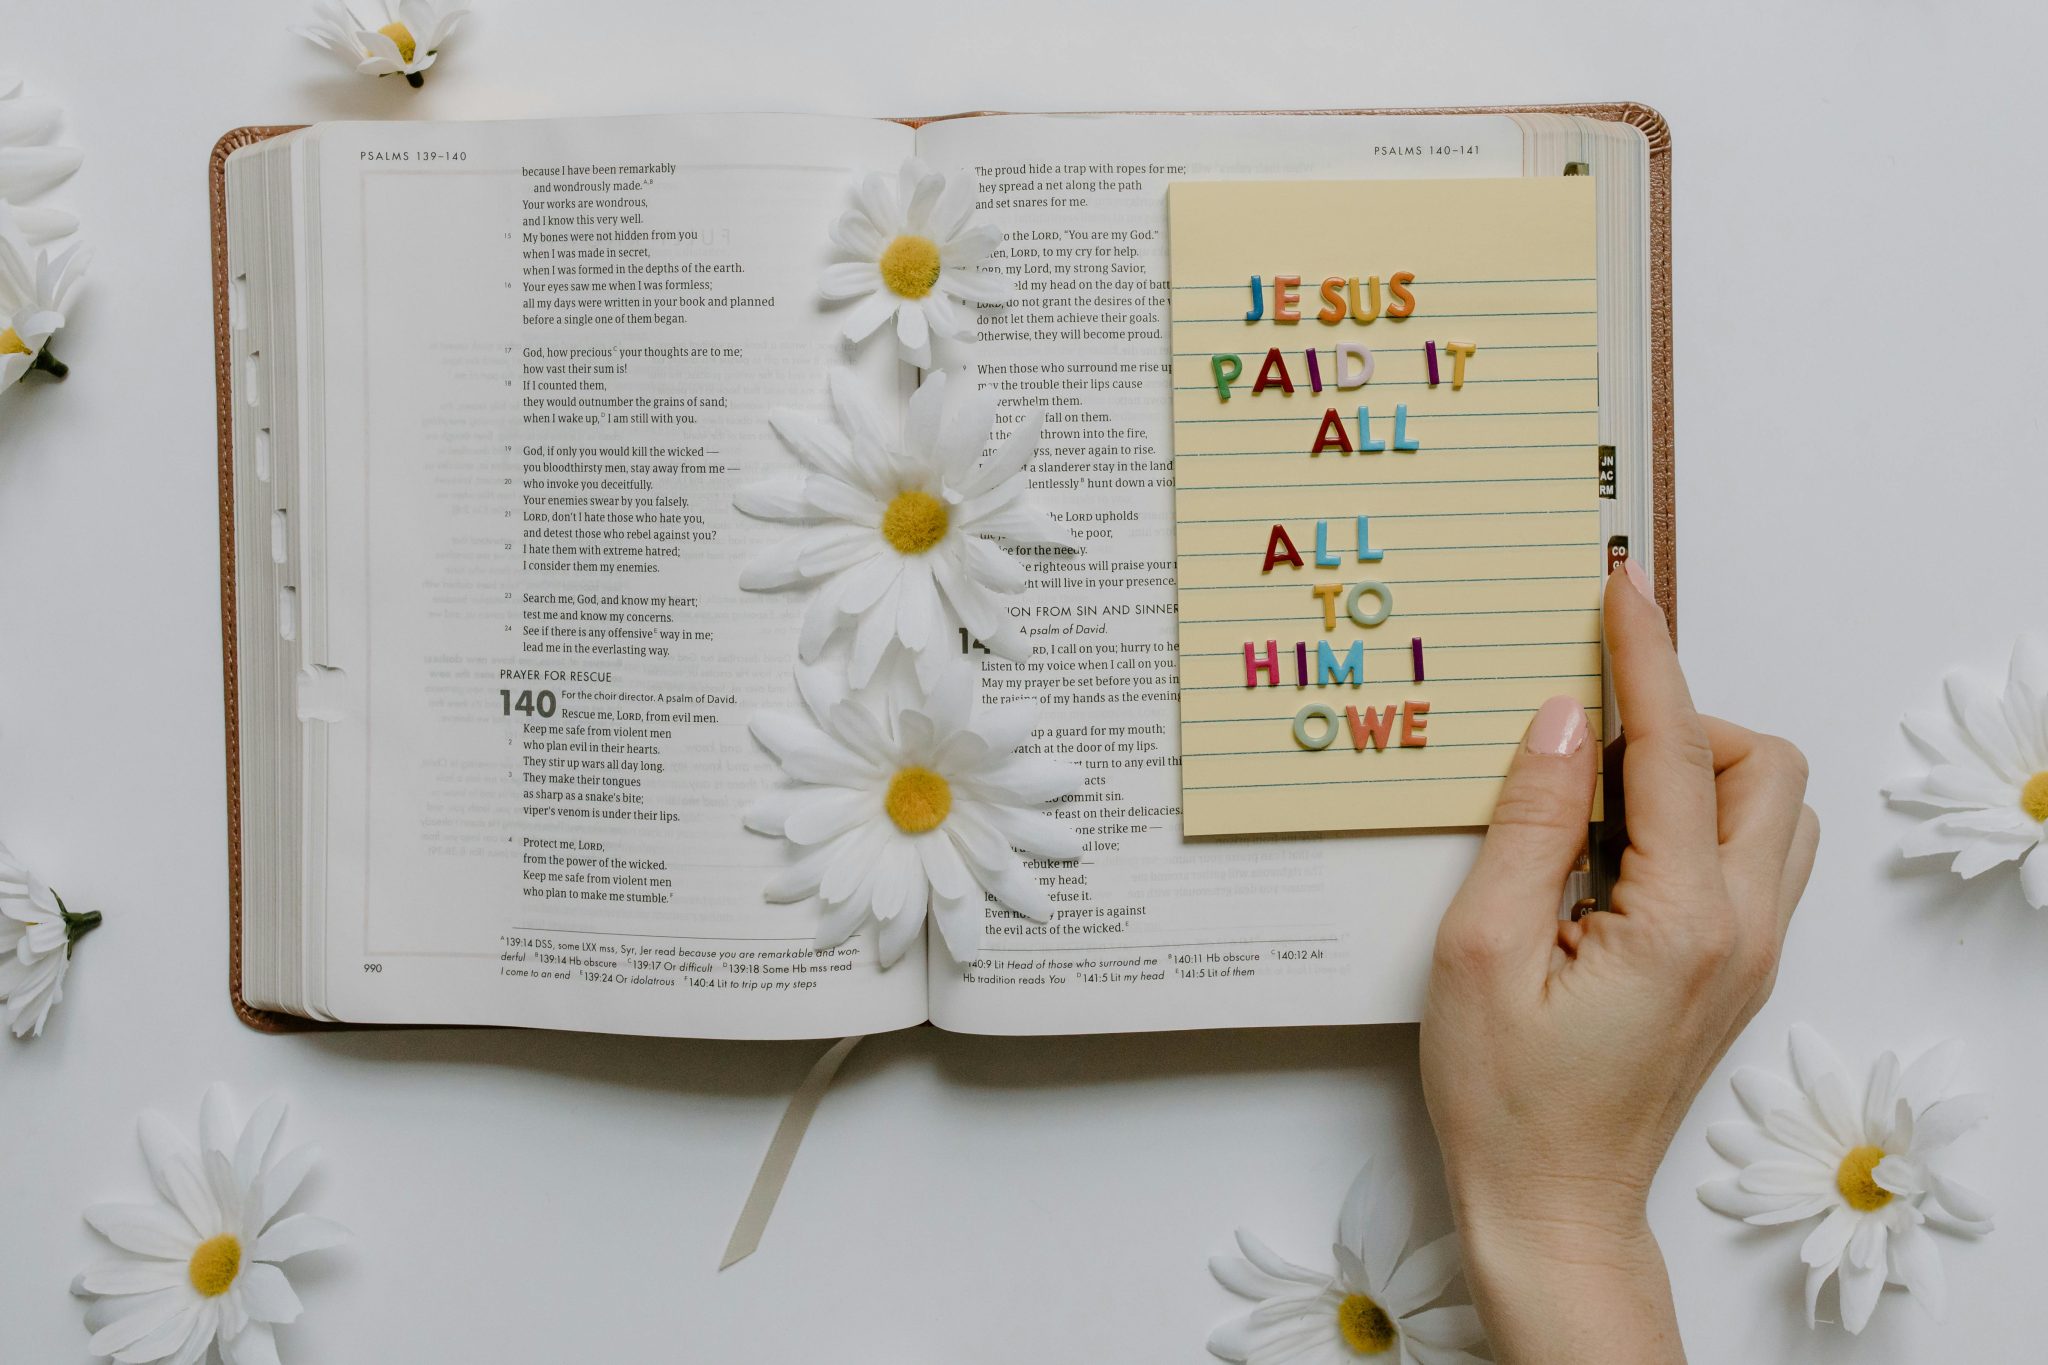 PSALMS 139–140
because I have been remarkably
and wondrously made.A,B
Your works are wondrous,
and I know this very well.
15 My bones were not hidden from you
when I was made in secret,
when I was formed in the depths of the earth.
16 Your eyes saw me when I was formless;
all my days were written in your book and planned
before a single one of them began.
17 God, how preciousC your thoughts are to me;
how vast their sum is!
18 If I counted them,
they would outnumber the grains of sand;
when I wake up,D I am still with you.
19 God, if only you would kill the wicked —
you bloodthirsty men, stay away from me —
20 who invoke you deceitfully.
Your enemies swear by you falsely.
21 LORD, don't I hate those who hate you,
and detest those who rebel against you?
22 I hate them with extreme hatred;
I consider them my enemies.
23 Search me, God, and know my heart;
test me and know my concerns.
24 See if there is any offensiveE way in me;
lead me in the everlasting way.
PRAYER FOR RESCUE
140 For the choir director. A psalm of David.
Rescue me, LORD, from evil men.
Keep me safe from violent men
2 who plan evil in their hearts.
They stir up wars all day long.
3 They make their tongues
as sharp as a snake's bite;
viper's venom is under their lips.
4 Protect me, LORD,
from the power of the wicked.
Keep me safe from violent men
who plan to make me stumble.F
A139:14 DSS, some LXX mss, Syr, Jer read because you are remarkable and won-
derful B139:14 Hb obscure C139:17 Or difficult D139:18 Some Hb mss read
I come to an end E139:24 Or idolatrous F140:4 Lit to trip up my steps
990
PSALMS 140–141
The proud hide a trap with ropes for me;
they spread a net along the path
and set snares for me.
to the LORD, "You are my God."
LORD, to my cry for help.
LORD, my Lord, my strong Savior,
my head on the day of
8 LORD, do not grant the desires of the
do not let them achieve their goals.
Otherwise, they will become proud.
9 When those who surround me rise up
may the trouble their lips cause
overwhelm them.
hot fall on them.
thrown into the fire,
never again to rise.
a slanderer stay in the land
B hunt down a
the LORD upholds
the poor,
for the needy.
righteous will praise your
will live in your presence.
FROM SIN AND
A psalm of David.
I call on you; hurry to
Listen to my voice when I call on you.
May my prayer be set before you as
the raising of my hands as the evening
up a guard for my mouth;
watch at the door of my lips.
turn to any evil
acts
commit sin.
feast on their delicacies.
one strike me —
love;
rebuke me —
my head;
refuse it.
Even prayer is against
the evil acts of the wicked.E
140:9 Lit Head of those who surround me B140:11 Hb obscure C140:12 Alt
Hb tradition reads You D141:5 Lit my head E141:5 Lit of them
JESUS
PAID IT
ALL
ALL
TO
HIM I
OWE
JN
AC
RM
CO